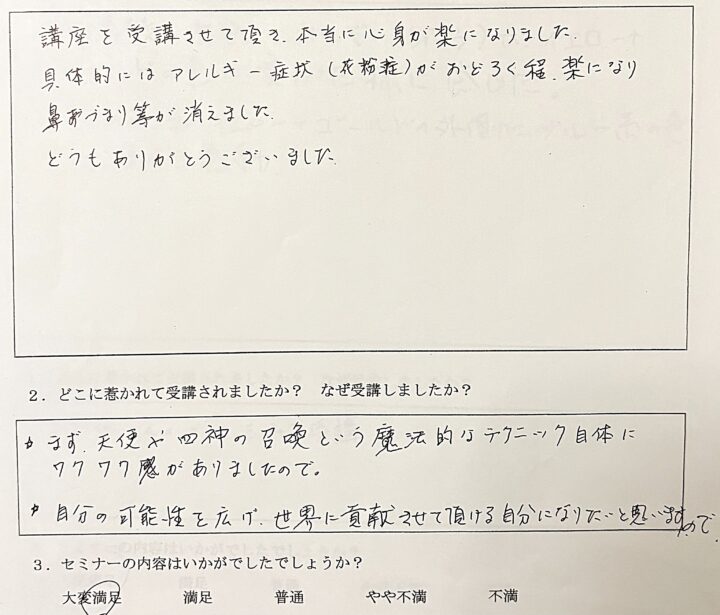 講座を受講させて頂き、本当に心身が楽になりました。
具体的にはアレルギー症状(花粉症)がおどろく程、楽になり
鼻おづまり等が消えました。
どうもありがとうございました。
2．どこに惹かれて受講されましたか？　なぜ受講しましたか？
まず、天使や四神の召喚という魔法的なテクニック自体に
ワクワク感がありましたので。
自分の可能性を広げ、世界に貢献させて頂ける自分になりたいと思いますので。
3．セミナーの内容はいかがでしたでしょうか？
大変満足　満足　普通　やや不満　不満